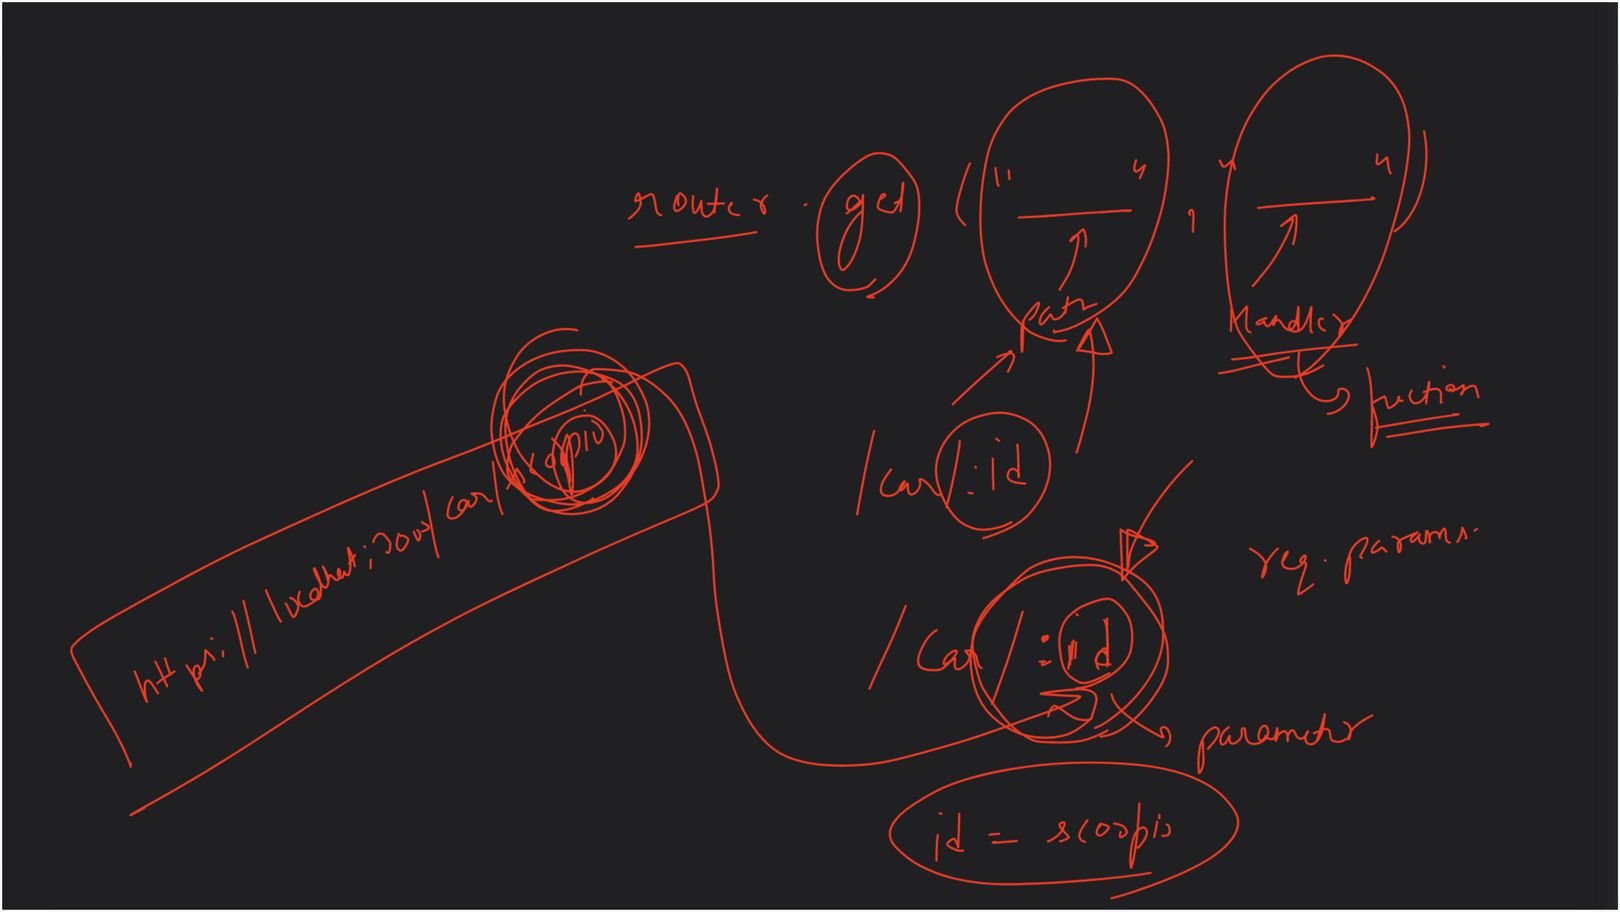 router . get ( " " , " " )
path
Handler
function
/car/:id
https://localhost:3000/car/scorpio
req.params.
/car/:id
parameter
id = scorpio